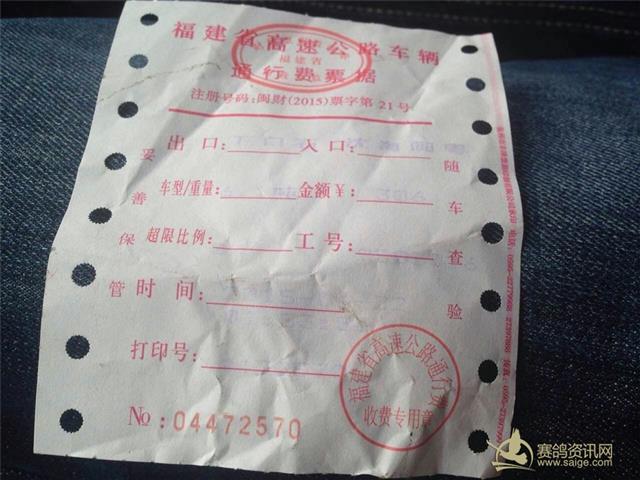 福建省高速公路车辆
福建省
通行费票据
注册号码:闽财(2015)票字第 21 号
出口: 入口:
车型/重量: 金额￥:
超限比例: 工号:
时间:
打印号:
妥善保管
随车查验
福建省高速公路通行费
收费专用章
№: 04472570
赛鸽资讯网
www.saige.com